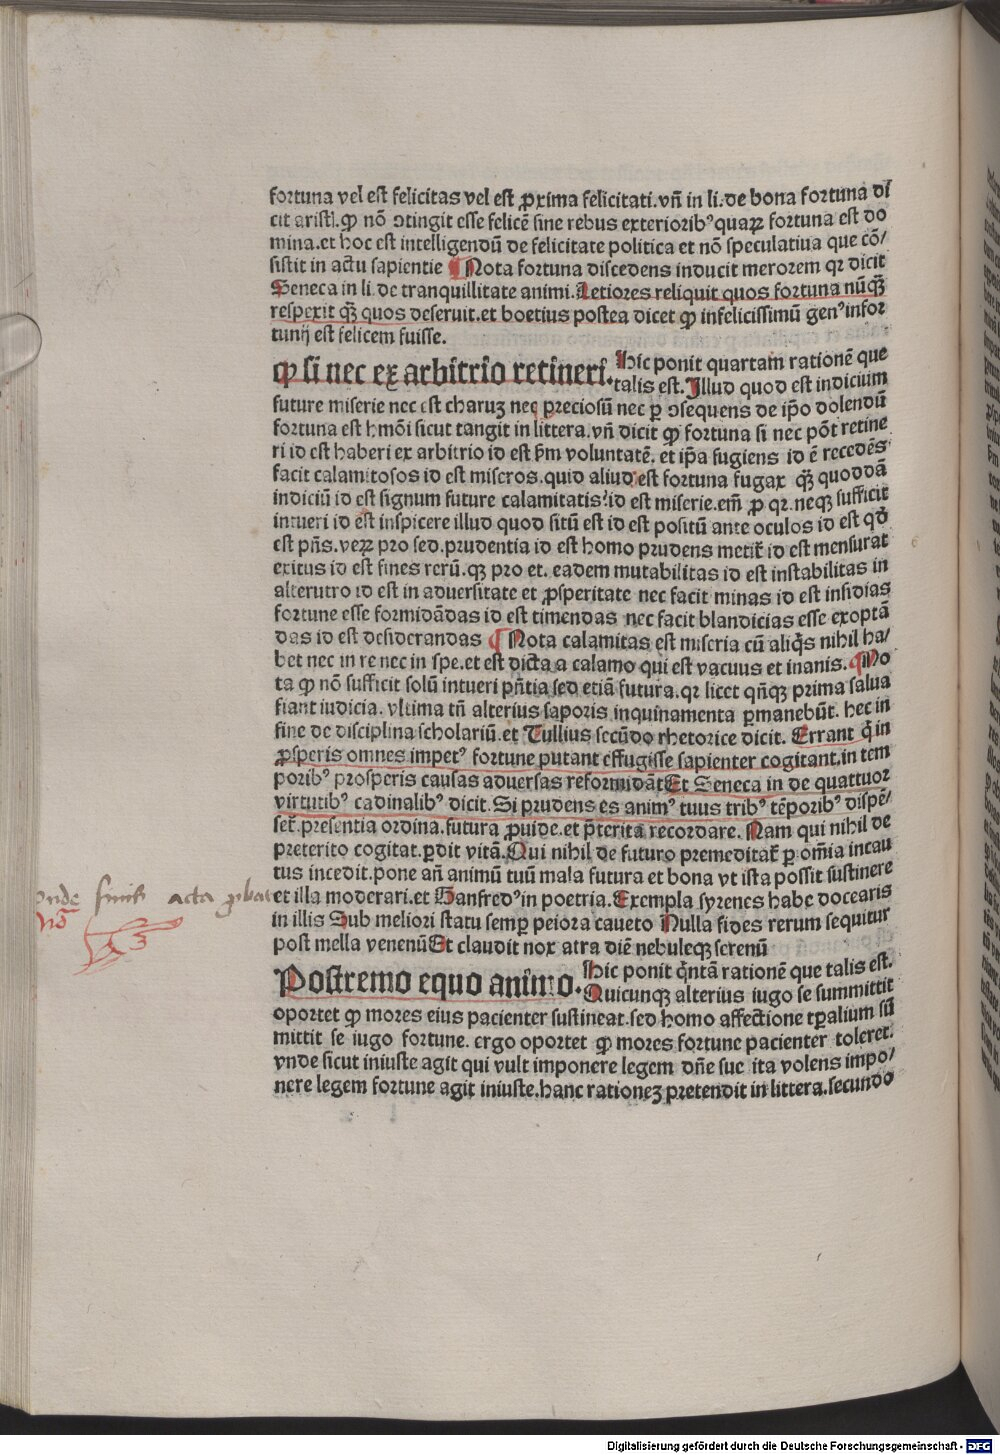 fortuna vel est felicitas vel est ꝓxima felicitati. vn̄ in li. de bona fortuna di
cit aristi. ꝙ nō ↄtingit esse felicē sine rebus exterioribꝰ quaꝝ fortuna est do
mina. et hoc est intelligendū de felicitate politica et nō speculatiua que cō/
sistit in actu sapientie ¶ Nota fortuna discedens inducit merorem qꝛ dicit
Seneca in li. de tranquillitate animi. Letiores reliquit quos fortuna nūꝗ̄
respexit ꝗ̄ quos deseruit. et boetius postea dicet ꝙ infelicissimū genꝰ infor
tunij est felicem fuisse.
ꝙ si nec ex arbitrio retineri. Hic ponit quartam rationē que
talis est. Illud quod est indicium
future miserie nec est charuꝫ neꝗ preciosū nec ꝑ ↄsequens de ip̄o dolendū
fortuna est hmōi sicut tangit in littera. vn̄ dicit ꝙ fortuna si nec pōt retine
ri id est haberi ex arbitrio id est ꝑm voluntatē. et ip̄a fugiens id ē recedēs
facit calamitosos id est miseros. quid aliud est fortuna fugax ꝗ̄ quoddā
indiciū id est signum future calamitatis? id est miserie. em̄ ꝓ qꝛ. neqꝫ sufficit
intueri id est inspicere illud quod sitū est id est positū ante oculos id est qd̄
est pn̄s. veꝝ pro sed. prudentia id est homo prudens metit̄ id est mensurat
exitus id est fines rerū. qꝫ pro et. eadem mutabilitas id est instabilitas in
alterutro id est in aduersitate et ꝓsperitate nec facit minas id est insidias
fortune esse formidādas id est timendas nec facit blandicias esse exoptā
das id est desiderandas ¶ Nota calamitas est miseria cū aliq̄s nihil ha/
bet nec in re nec in spe. et est dicta a calamo qui est vacuus et inanis. ¶ No
ta ꝙ nō sufficit solū intueri pn̄tia sed etiā futura. qꝛ licet qn̄qꝫ prima salua
fiant iudicia. vltima tn̄ alterius saporis inquinamenta ꝑmanebūt. hec in
fine de disciplina scholariū. et Tullius secūdo rhetorice dicit. Errant q̄ in
ꝓsperis omnes impetꝰ fortune putant effugisse sapienter cogitant. in tem
poribꝰ prosperis causas aduersas reformidāt Et Seneca in de quattuoꝛ
virtutibꝰ cadinalibꝰ dicit. Si prudens es animꝰ tuus tribꝰ tēporibꝰ dispē/
set̄. presentia ordina. futura ꝓuide. et p̄terita recordare. Nam qui nihil de
preterito cogitat. ꝑdit vitā. Qui nihil de futuro premeditat̄ ꝑ om̄ia incau
tus incedit. pone an̄ animū tuū mala futura et bona vt ista possit sustinere
et illa moderari. et Ganfredꝰ in poetria. Exempla syrenes habe docearis
in illis Sub meliori statu semꝑ peiora caueto Nulla fides rerum sequitur
post mella venenū Et claudit nox atra diē nebuleqꝫ serenū
Postremo equo animo. Hic ponit q̄ntā rationē que talis est.
Quicunqꝫ alterius iugo se summittit
oportet ꝙ mores eius pacienter sustineat. sed homo affectione tꝑalium sū
mittit se iugo fortune. ergo oportet ꝙ mores fortune pacienter toleret.
vnde sicut iniuste agit qui vult imponere legem dn̄e sue ita volens impo/
nere legem fortune agit iniuste. hanc rationeꝫ pretendit in littera. secundo
vnde finis acta ꝓbat
Nō
Digitalisierung gefördert durch die Deutsche Forschungsgemeinschaft - DFG